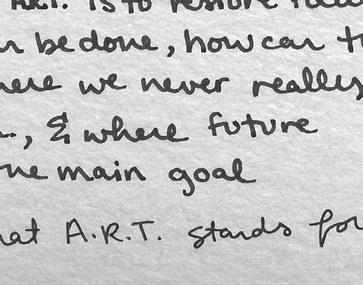 A.R.T. is to restore
be done, how can
we never really
, & where future
main goal
A.R.T. stands for